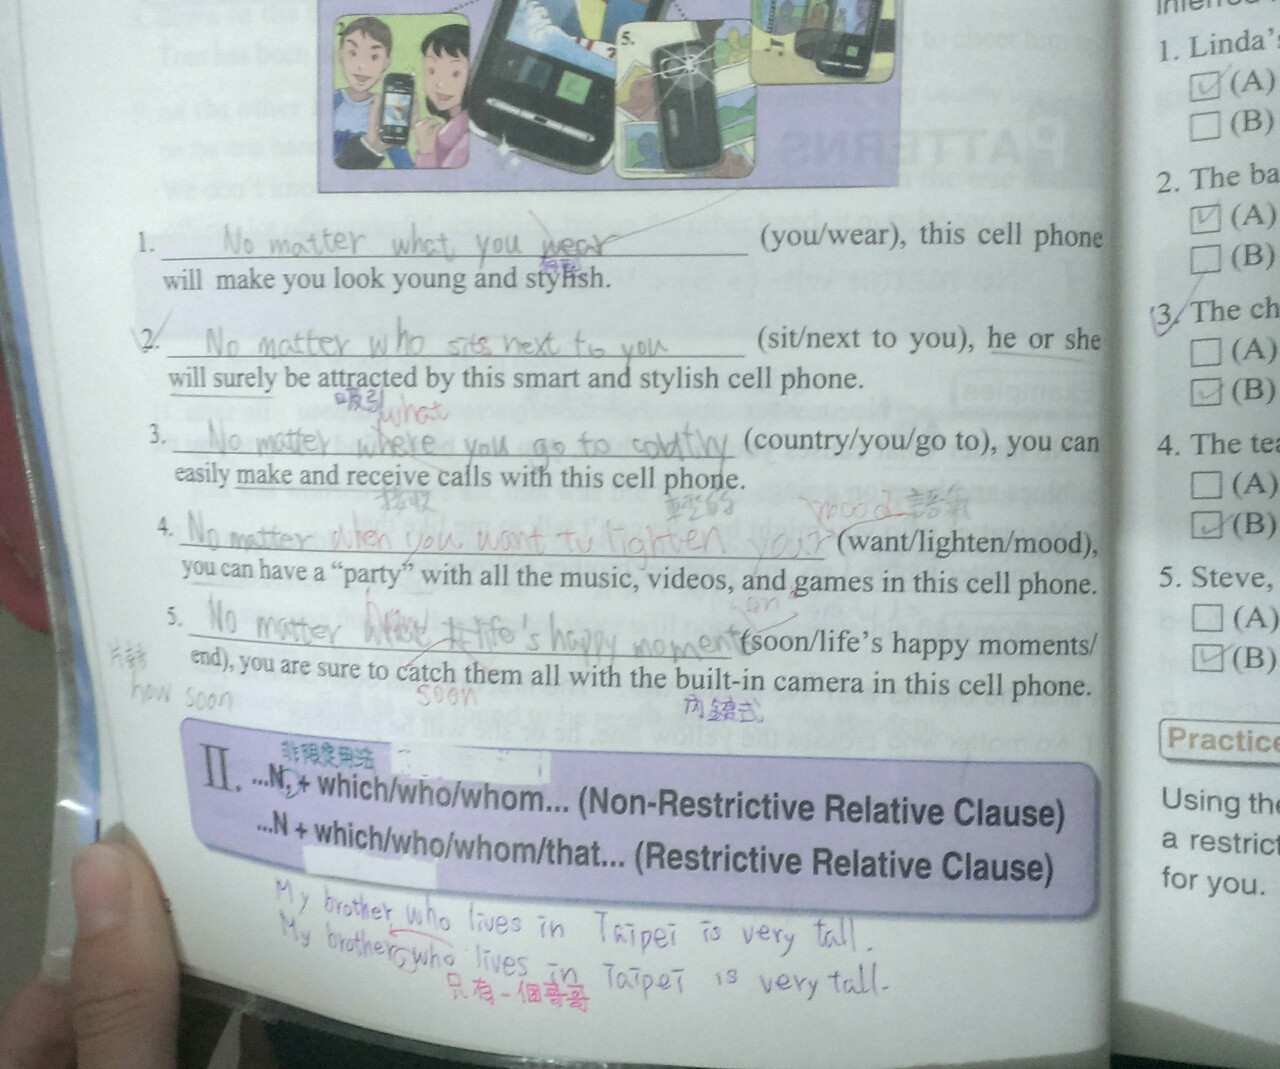 2.
5.
1. No matter what you wear (you/wear), this cell phone
will make you look young and stylish.
2. No matter who sits next to you (sit/next to you), he or she
will surely be attracted by this smart and stylish cell phone.
吸引 what
3. No matter where you go to (country/you/go to), you can
easily make and receive calls with this cell phone.
接收 mood 語氣
4. No matter when you want to lighten your (want/lighten/mood),
you can have a “party” with all the music, videos, and games in this cell phone.
5. No matter life's happy moment (soon/life’s happy moments/
end), you are sure to catch them all with the built-in camera in this cell phone.
how soon soon 內鑲式
非限定用法
II. ...N, + which/who/whom... (Non-Restrictive Relative Clause)
...N + which/who/whom/that... (Restrictive Relative Clause)
My brother who lives in Taipei is very tall.
My brother, who lives in Taipei is very tall.
只有一個哥哥
1. Linda’s
(A)
(B)
2. The ba
(A)
(B)
3. The ch
(A)
(B)
4. The tea
(A)
(B)
5. Steve,
(A)
(B)
Practice
Using the
a restrict
for you.